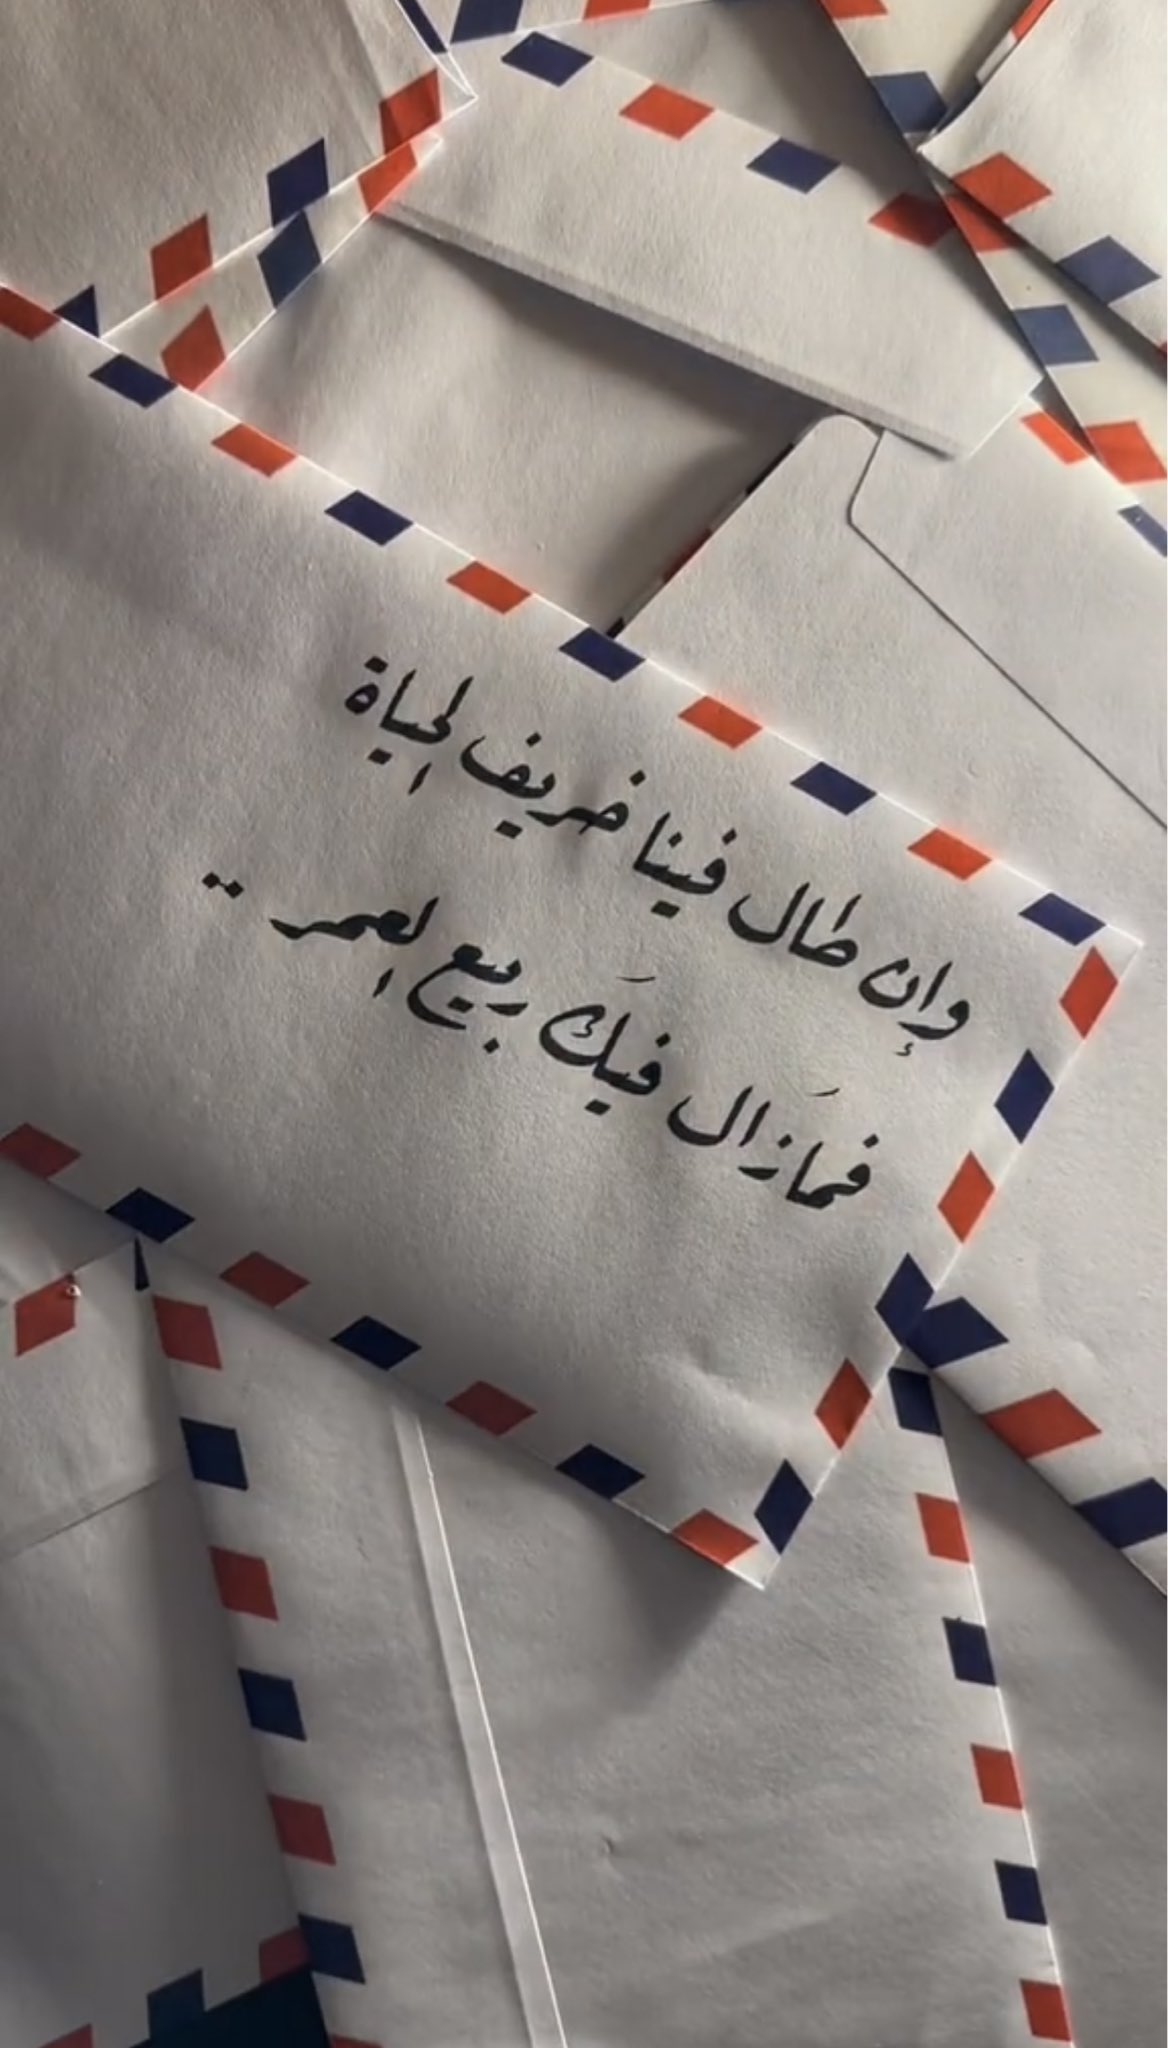 وإن طال فينا خريف الحياة
فمَازال فيكَ ربيع العمر ..